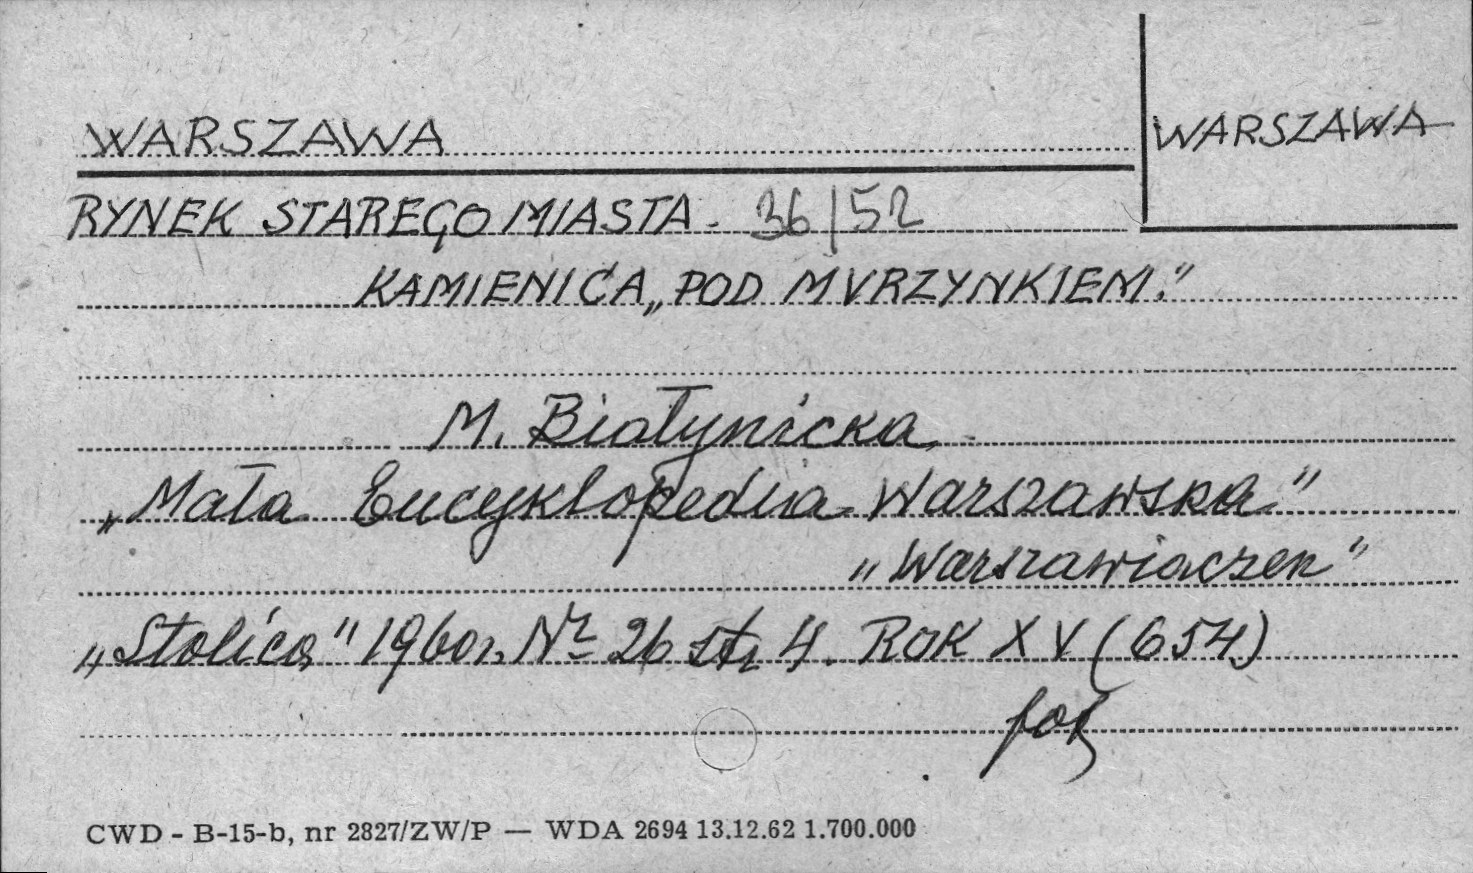 WARSZAWA
WARSZAWA
RYNEK STAREGO MIASTA - 36/52
KAMIENICA „POD MURZYNKIEM."
M. Białynicka
„Mała Encyklopedia Warszawska"
„Warszawiaczek"
„Stolica" 1960r. Nr 26 str 4. Rok XV (654)
fot
CWD - B-15-b, nr 2827/ZW/P — WDA 2694 13.12.62 1.700.000